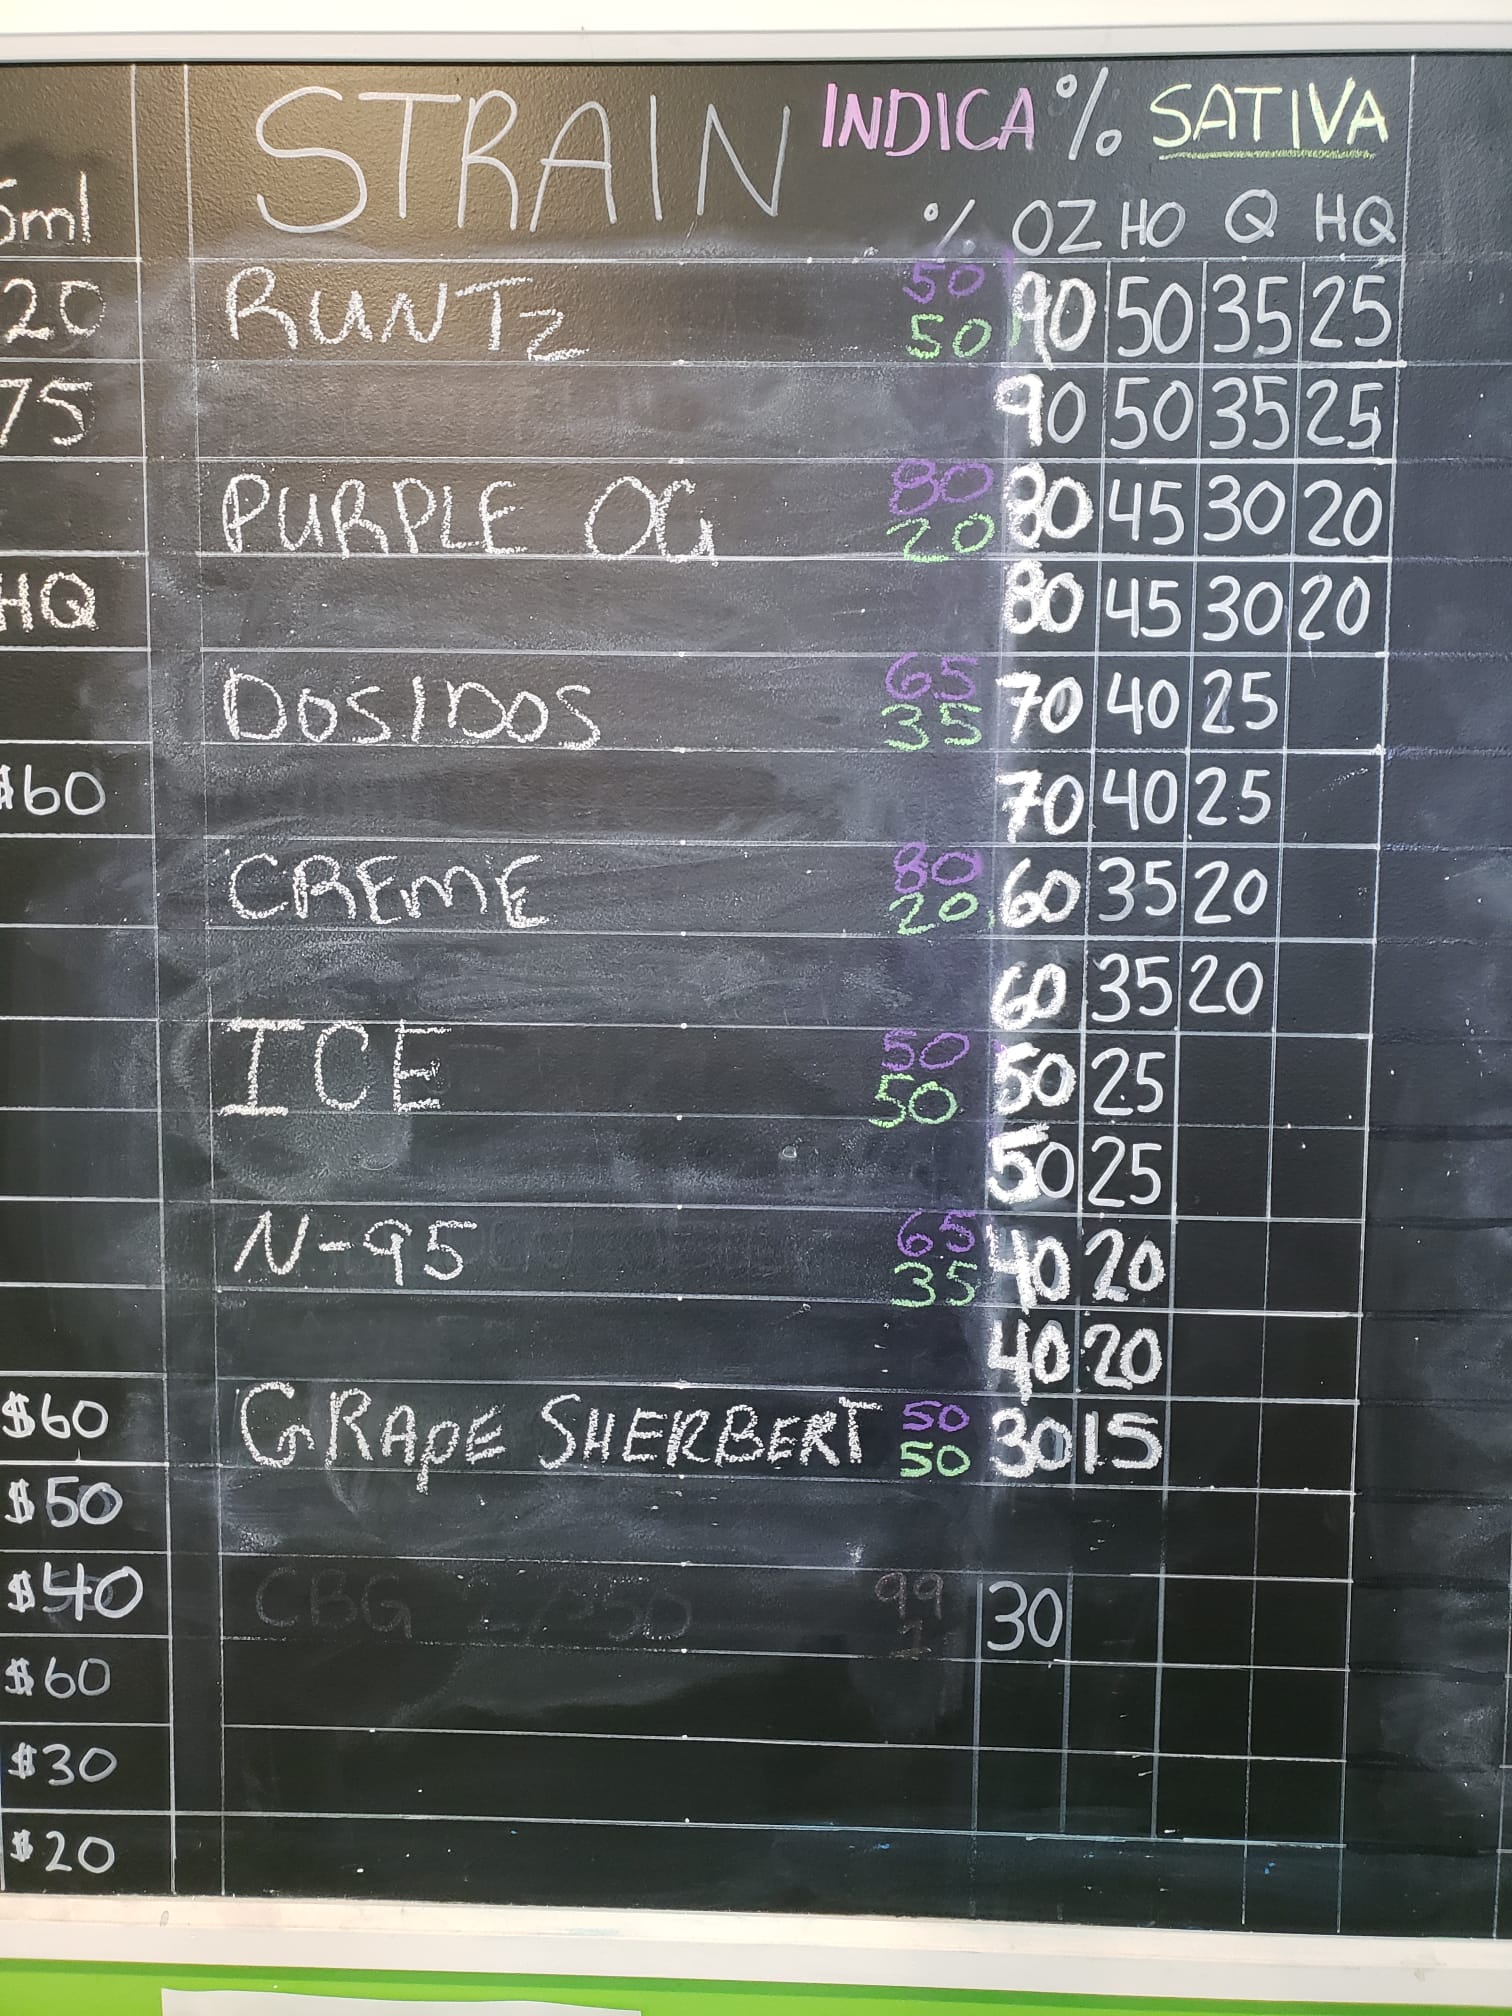 STRAIN INDICA % SATIVA
5ml % OZ HO Q HQ
20 RUNTZ 50 90 50 35 25
50
75 90 50 35 25
PURPLE OG 80 80 45 30 20
20
HQ 80 45 30 20
DOSIDOS 65 70 40 25
35
$60 70 40 25
CREME 80 60 35 20
20
60 35 20
ICE 50 50 25
50
50 25
N-95 65 40 20
35
40 20
$60 GRAPE SHERBERT 50 30 15
50
$50
$40 CBG 99 30
1
$60
$30
$20